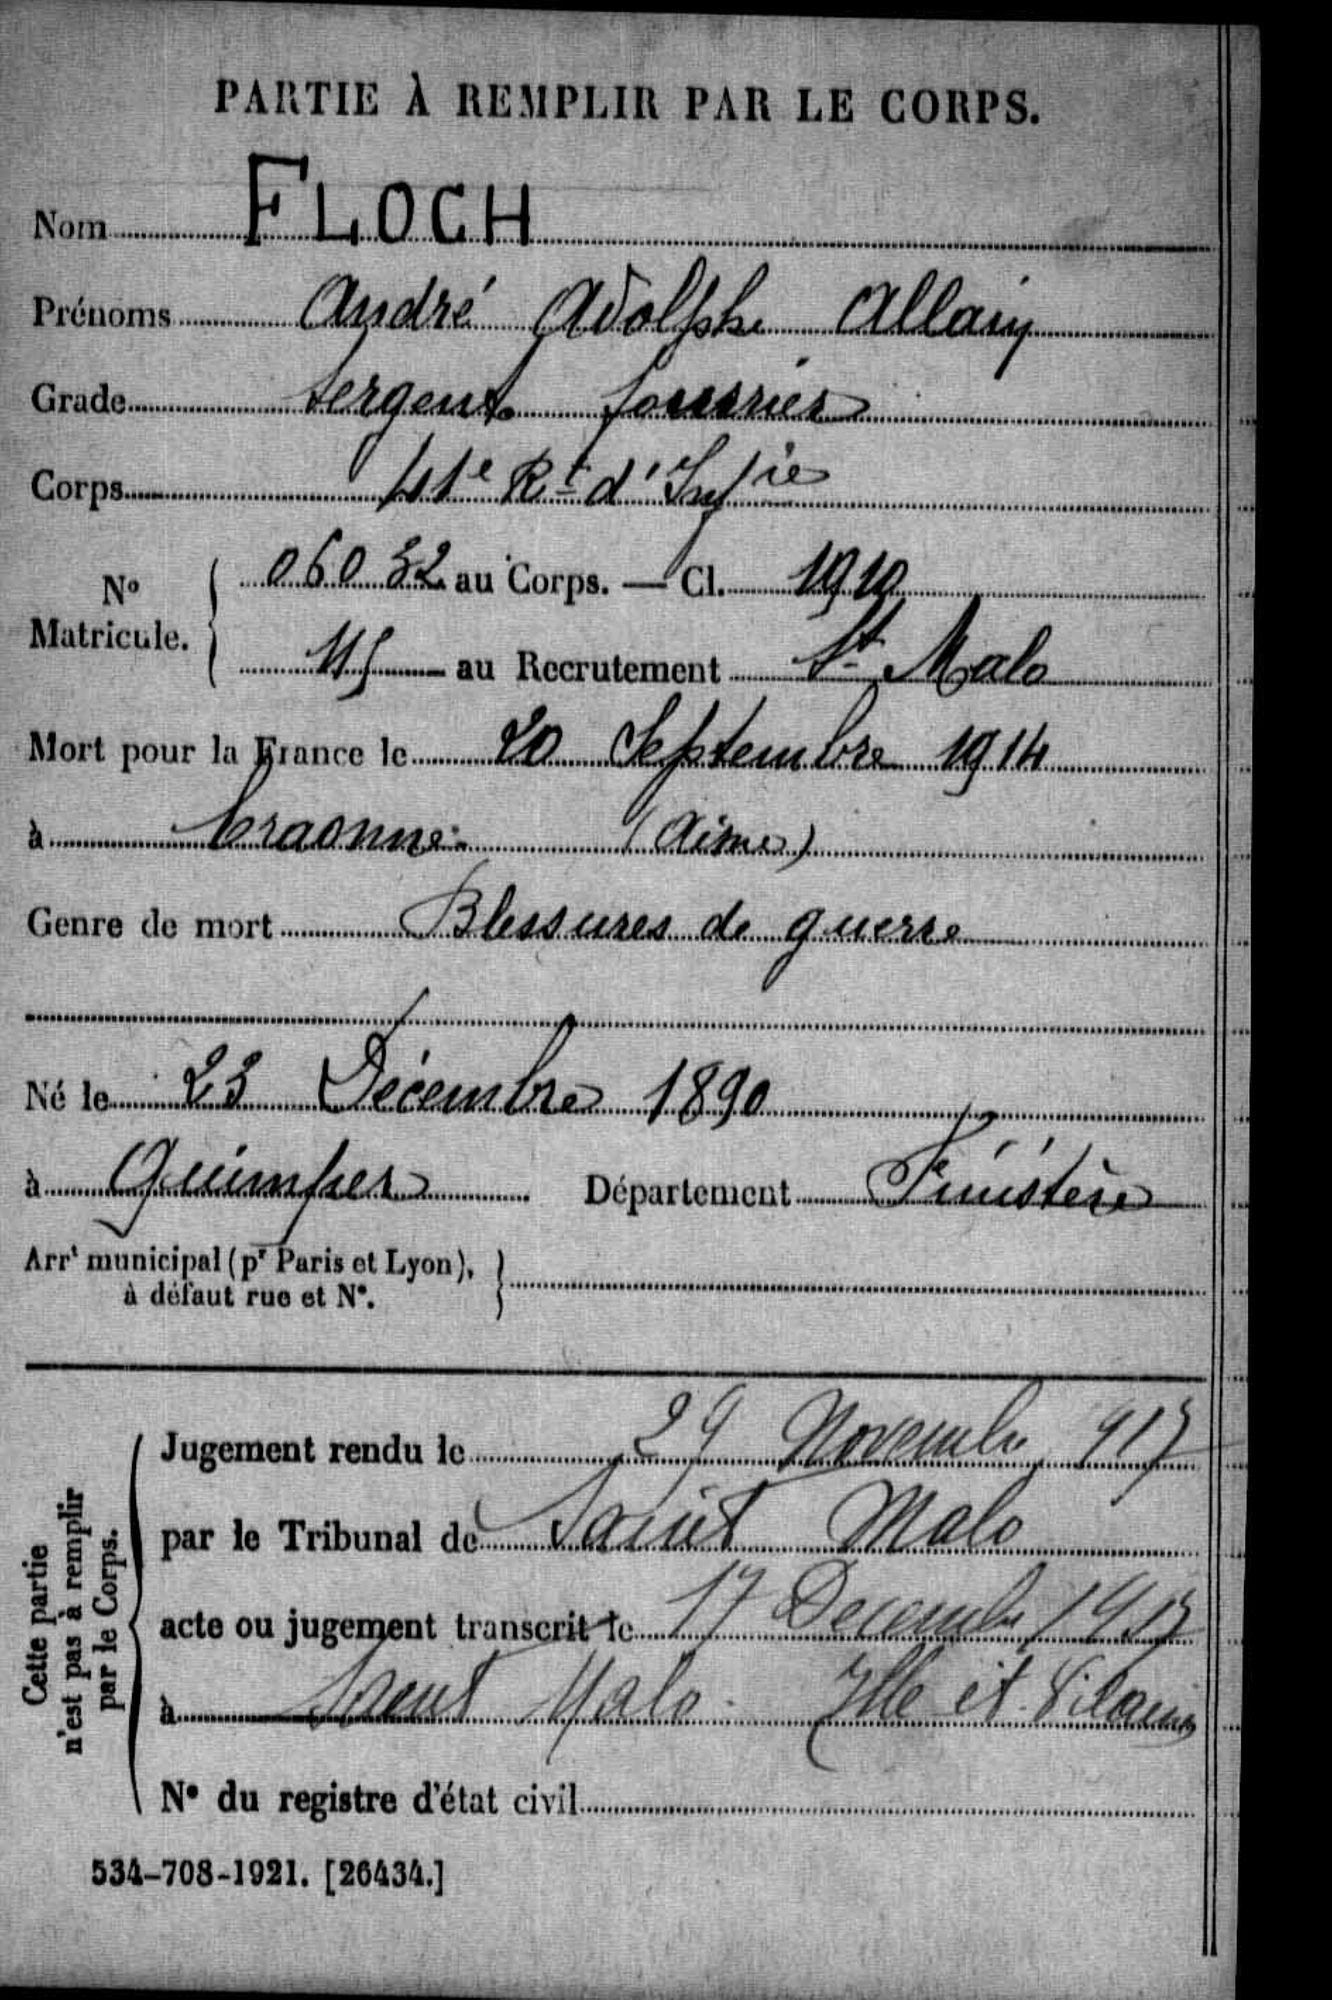 PARTIE À REMPLIR PAR LE CORPS.
Nom FLOCH
Prénoms André Adolphe Allain
Grade Sergent fourrier
Corps 41e Rt d'Infie
No Matricule. 06032 au Corps. — Cl. 1910
115 au Recrutement St Malo
Mort pour la France le 20 Septembre 1914
à Craonne (Aisne)
Genre de mort Blessures de guerre
Né le 23 Décembre 1890
à Quimper Département Finistère
Arrt municipal (pr Paris et Lyon),
à défaut rue et N°.
Cette partie
n'est pas à remplir
par le Corps.
Jugement rendu le 29 Novembre 917
par le Tribunal de Saint Malo
acte ou jugement transcrit le 17 Decembre 1917
à Saint Malo. Ille et Vilaine
N° du registre d'état civil
534-708-1921. [26434.]